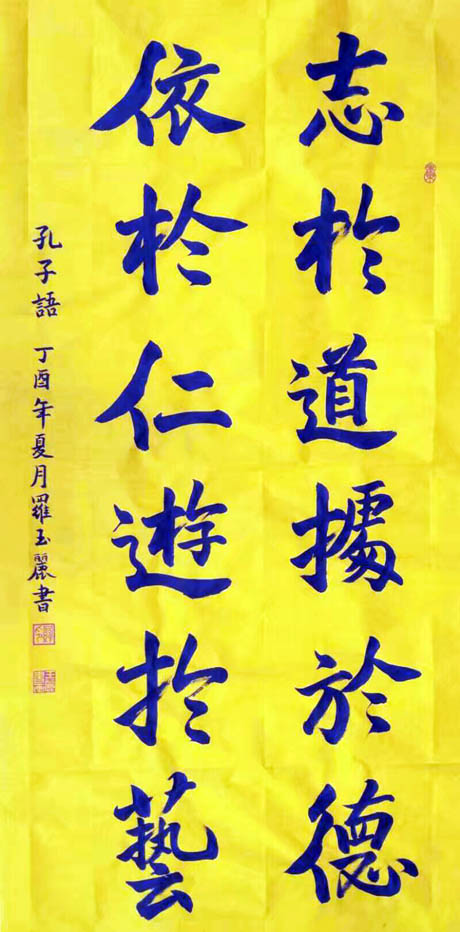 志於道據於德
依於仁遊於藝
孔子語 丁酉年夏月羅玉麗書